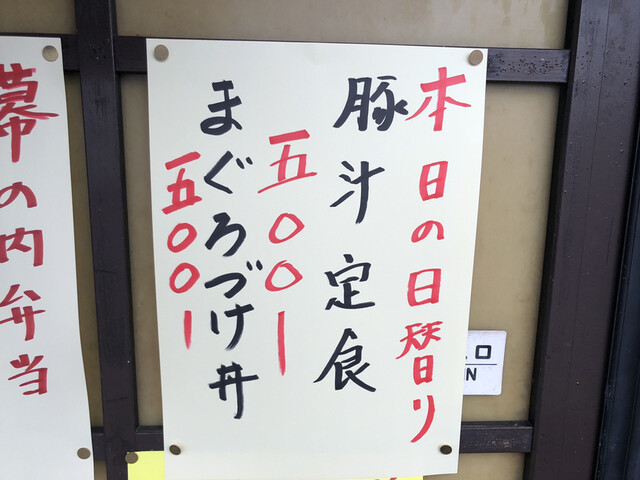 本日の日替り
豚汁定食
一五〇〇ー
まぐろづけ丼
一五〇〇ー
幕の内弁当